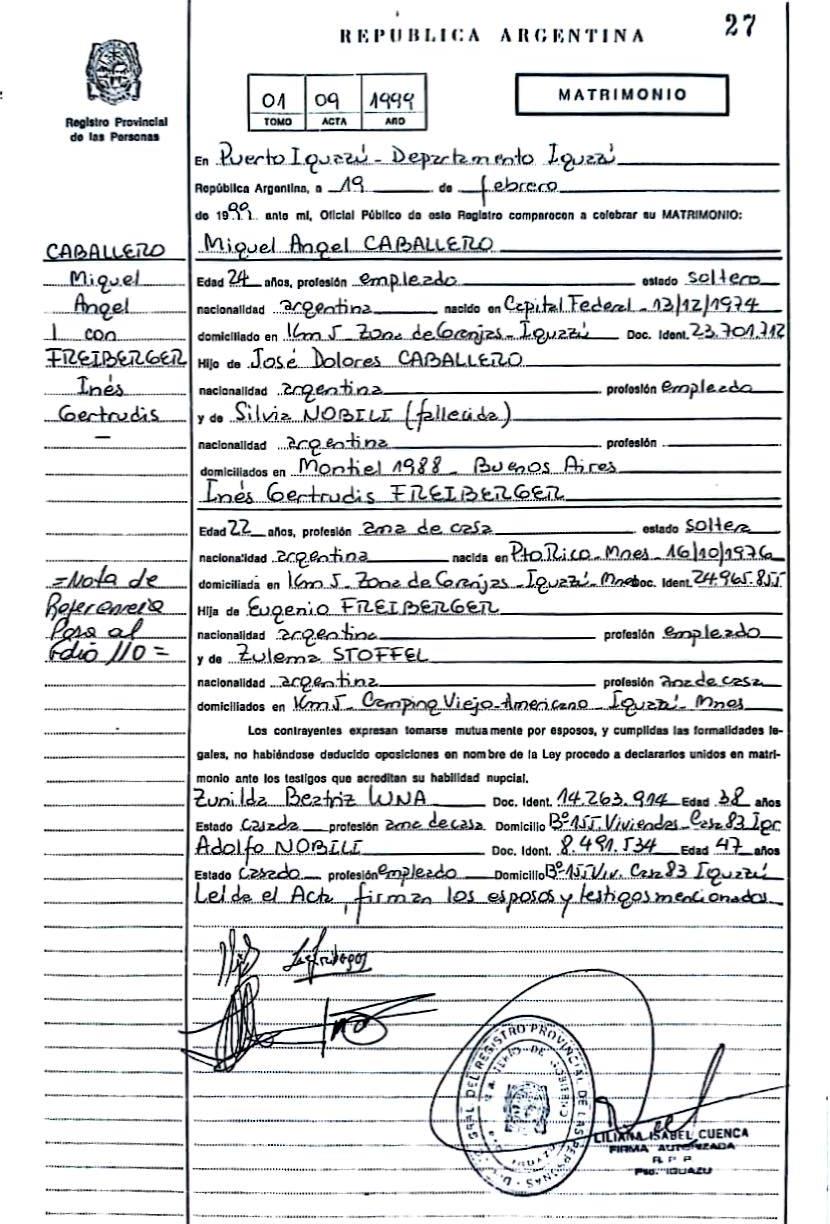 27
REPUBLICA ARGENTINA
Registro Provincial
de las Personas
01 09 1999
TOMO ACTA AÑO
MATRIMONIO
En Puerto Iguazú - Departamento Iguazú
República Argentina, a 19 de febrero
de 1999 ante mi, Oficial Público de este Registro comparecen a celebrar su MATRIMONIO:
CABALLERO
Miguel
Angel
con
FREIBERGER
Inés
Gertrudis
Miguel Angel CABALLERO
Edad 24 años, profesión empleado estado soltero
nacionalidad argentina nacido en Capital Federal - 13/12/1974
domiciliado en Km 5 - Zona de Granjas - Iguazú Doc. Ident. 23.701.712
Hijo de José Dolores CABALLERO
nacionalidad argentina profesión empleado
y de Silvia NOBILI (fallecida)
nacionalidad argentina profesión
domiciliados en Montiel 1988 - Buenos Aires
Inés Gertrudis FREIBERGER
Edad 22 años, profesión ama de casa estado soltera
nacionalidad argentina nacida en Pto. Rico - Mnes - 16/10/1976
domiciliada en Km 5 - Zona de Granjas - Iguazú - Mnes Doc. Ident. 24.965.855
Hija de Eugenio FREIBERGER
nacionalidad argentina profesión empleado
y de Zulema STOFFEL
nacionalidad argentina profesión ama de casa
domiciliados en Km 5 - Camping Viejo Americano - Iguazú - Mnes
=Nota de
Referencia
Pasa al
folio 110=
Los contrayentes expresan tomarse mutuamente por esposos, y cumplidas las formalidades le-
gales, no habiéndose deducido oposiciones en nombre de la Ley procedo a declararlos unidos en matri-
monio ante los testigos que acreditan su habilidad nupcial.
Zunilda Beatriz LUNA Doc. Ident. 14.263.914 Edad 38 años
Estado Casada profesión ama de casa Domicilio Bº 155 Viviendas - Casa 83 Igr
Adolfo NOBILI Doc. Ident. 8.491.534 Edad 47 años
Estado Casado profesión empleado Domicilio Bº 155 Viv. Casa 83 Iguazú
Leída el Acta, firman los esposos y testigos mencionados
LILIANA ISABEL CUENCA
FIRMA AUTORIZADA
R. P. P.
Pto. IGUAZU